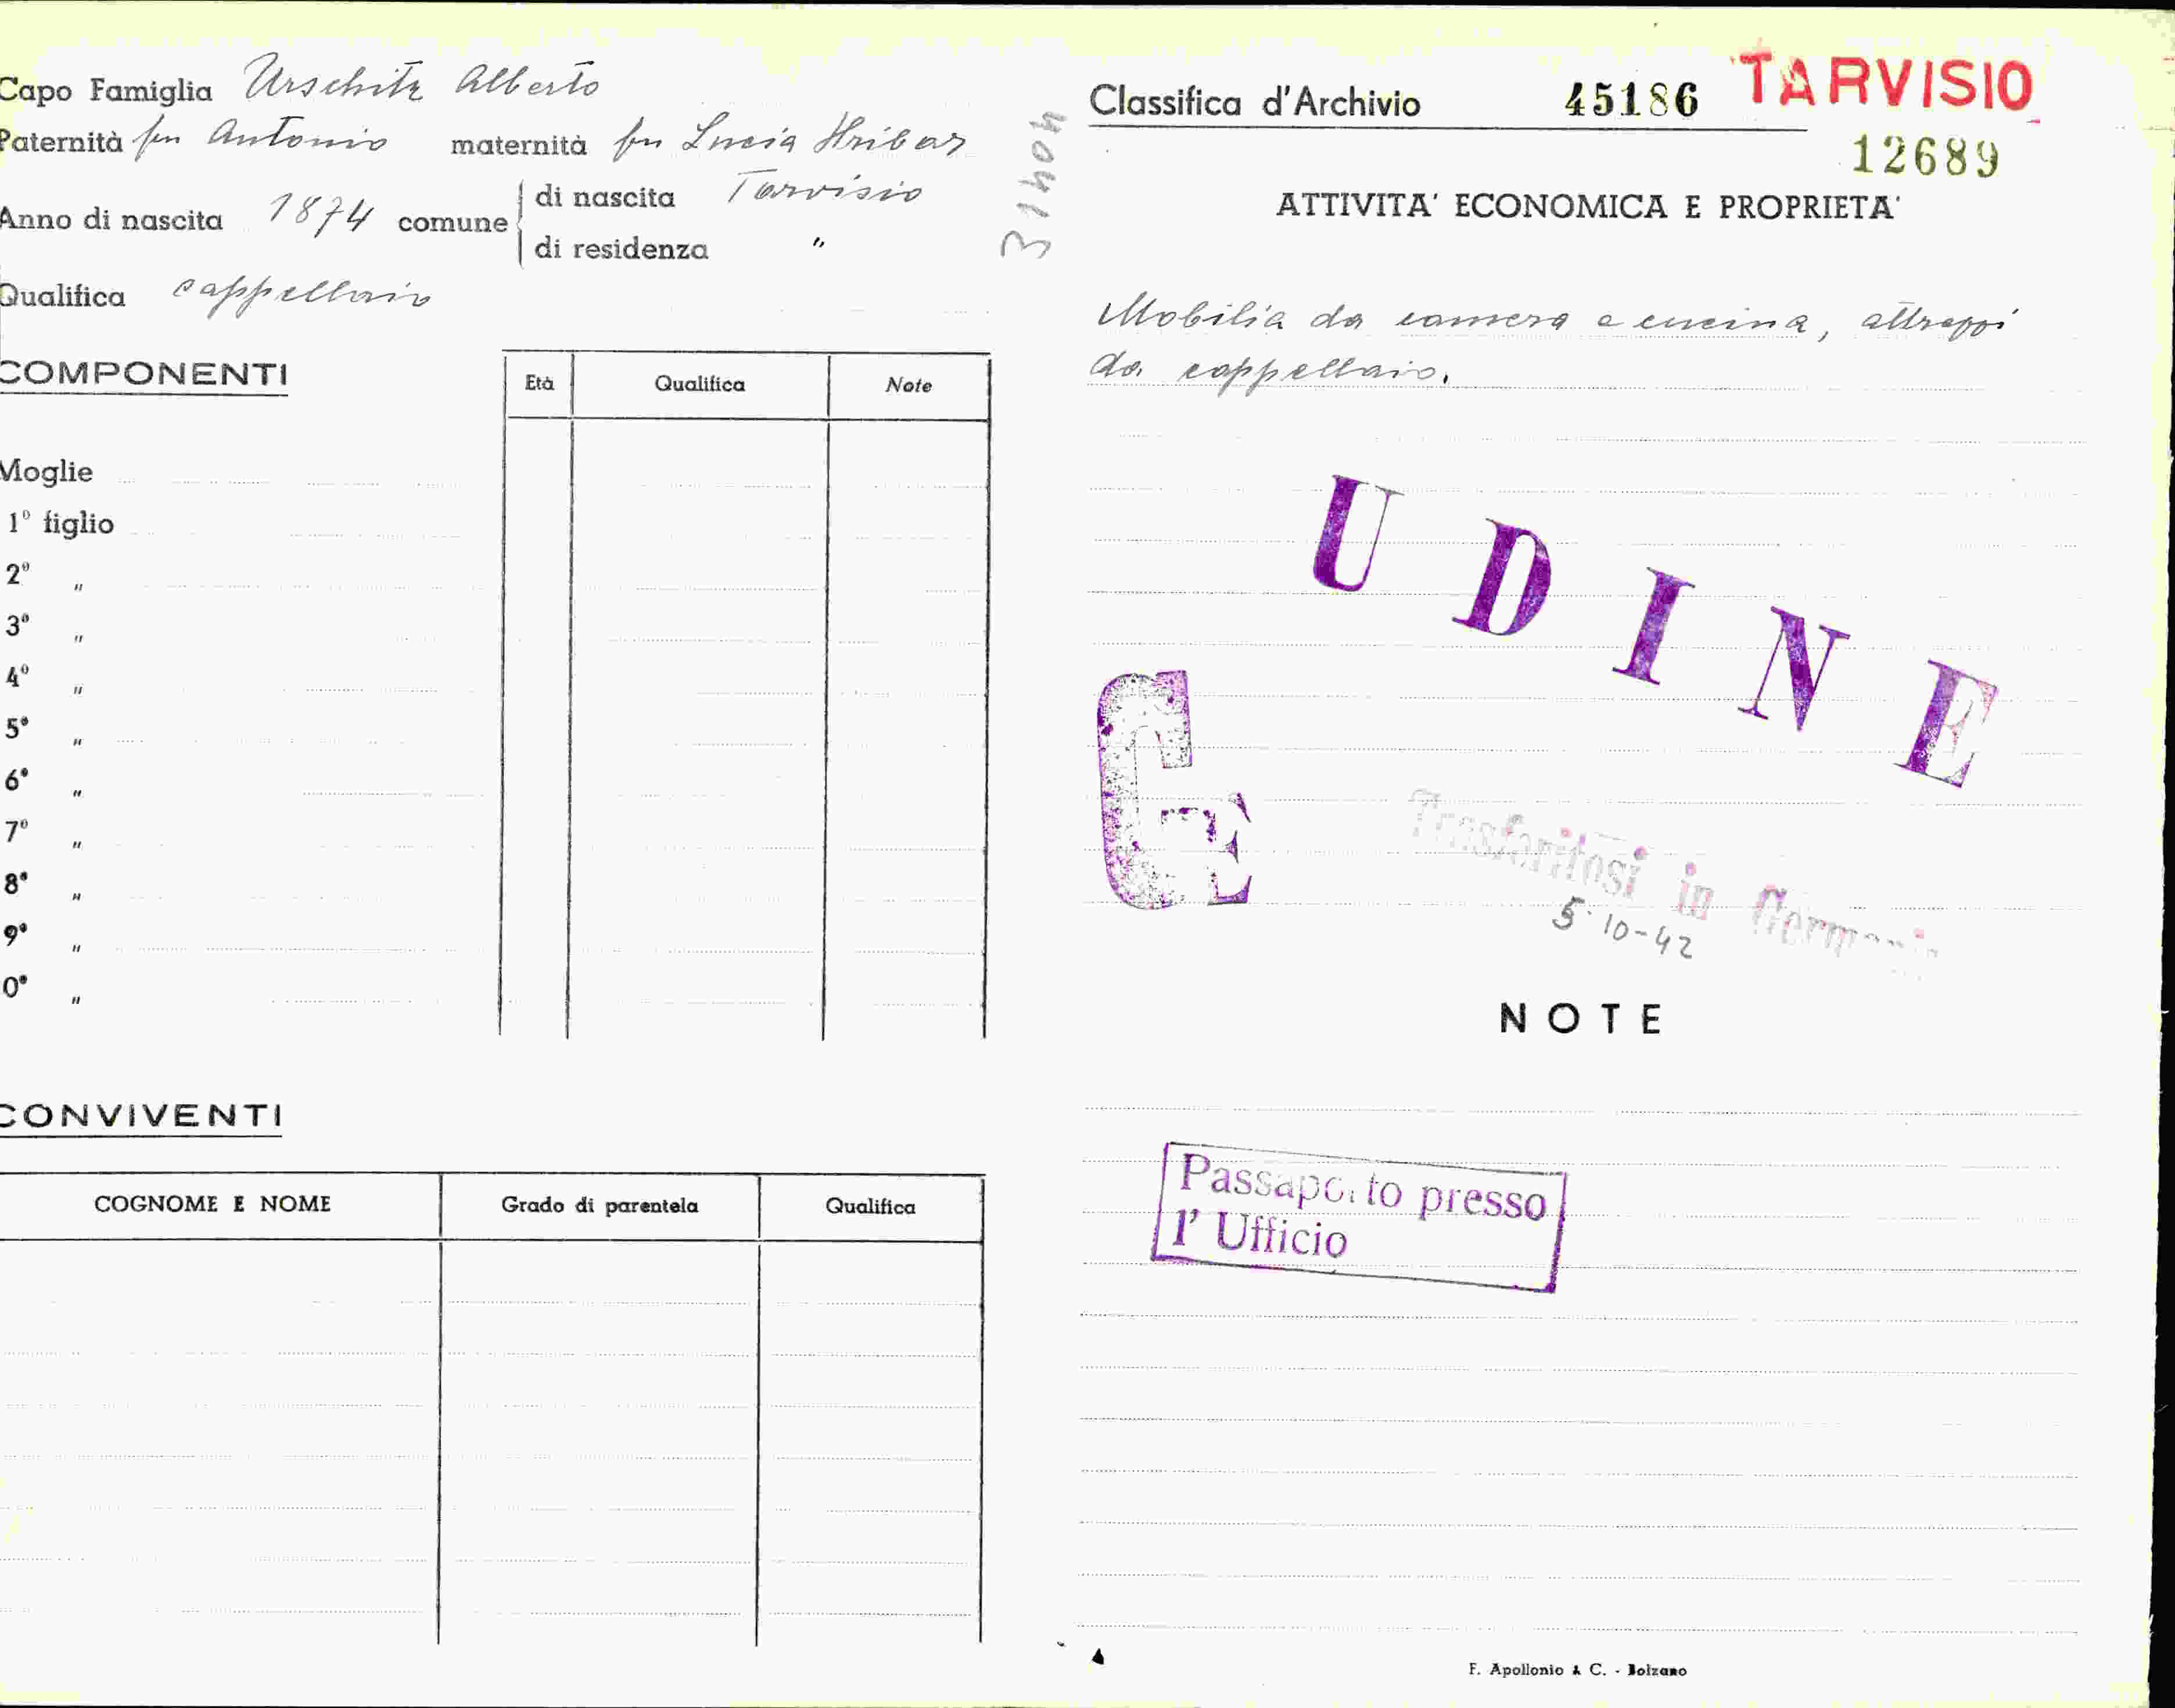 Capo Famiglia Urschitz Alberto
Paternità fu Antonio maternità fu Lucia Hribar
Anno di nascita 1874 comune di nascita Tarvisio
di residenza "
Qualifica cappellaio
COMPONENTI
Età Qualifica Note
Moglie
1° figlio
2° "
3° "
4° "
5° "
6° "
7° "
8° "
9° "
0° "
CONVIVENTI
COGNOME E NOME Grado di parentela Qualifica
31404
Classifica d'Archivio 45186 TARVISIO
12689
ATTIVITA' ECONOMICA E PROPRIETA'
Mobilia da camera e cucina, attrezzi
da cappellaio.
UDINE
GE
Trasferitosi in Germania
5-10-42
NOTE
Passaporto presso
l' Ufficio
F. Apollonio & C. - Bolzano